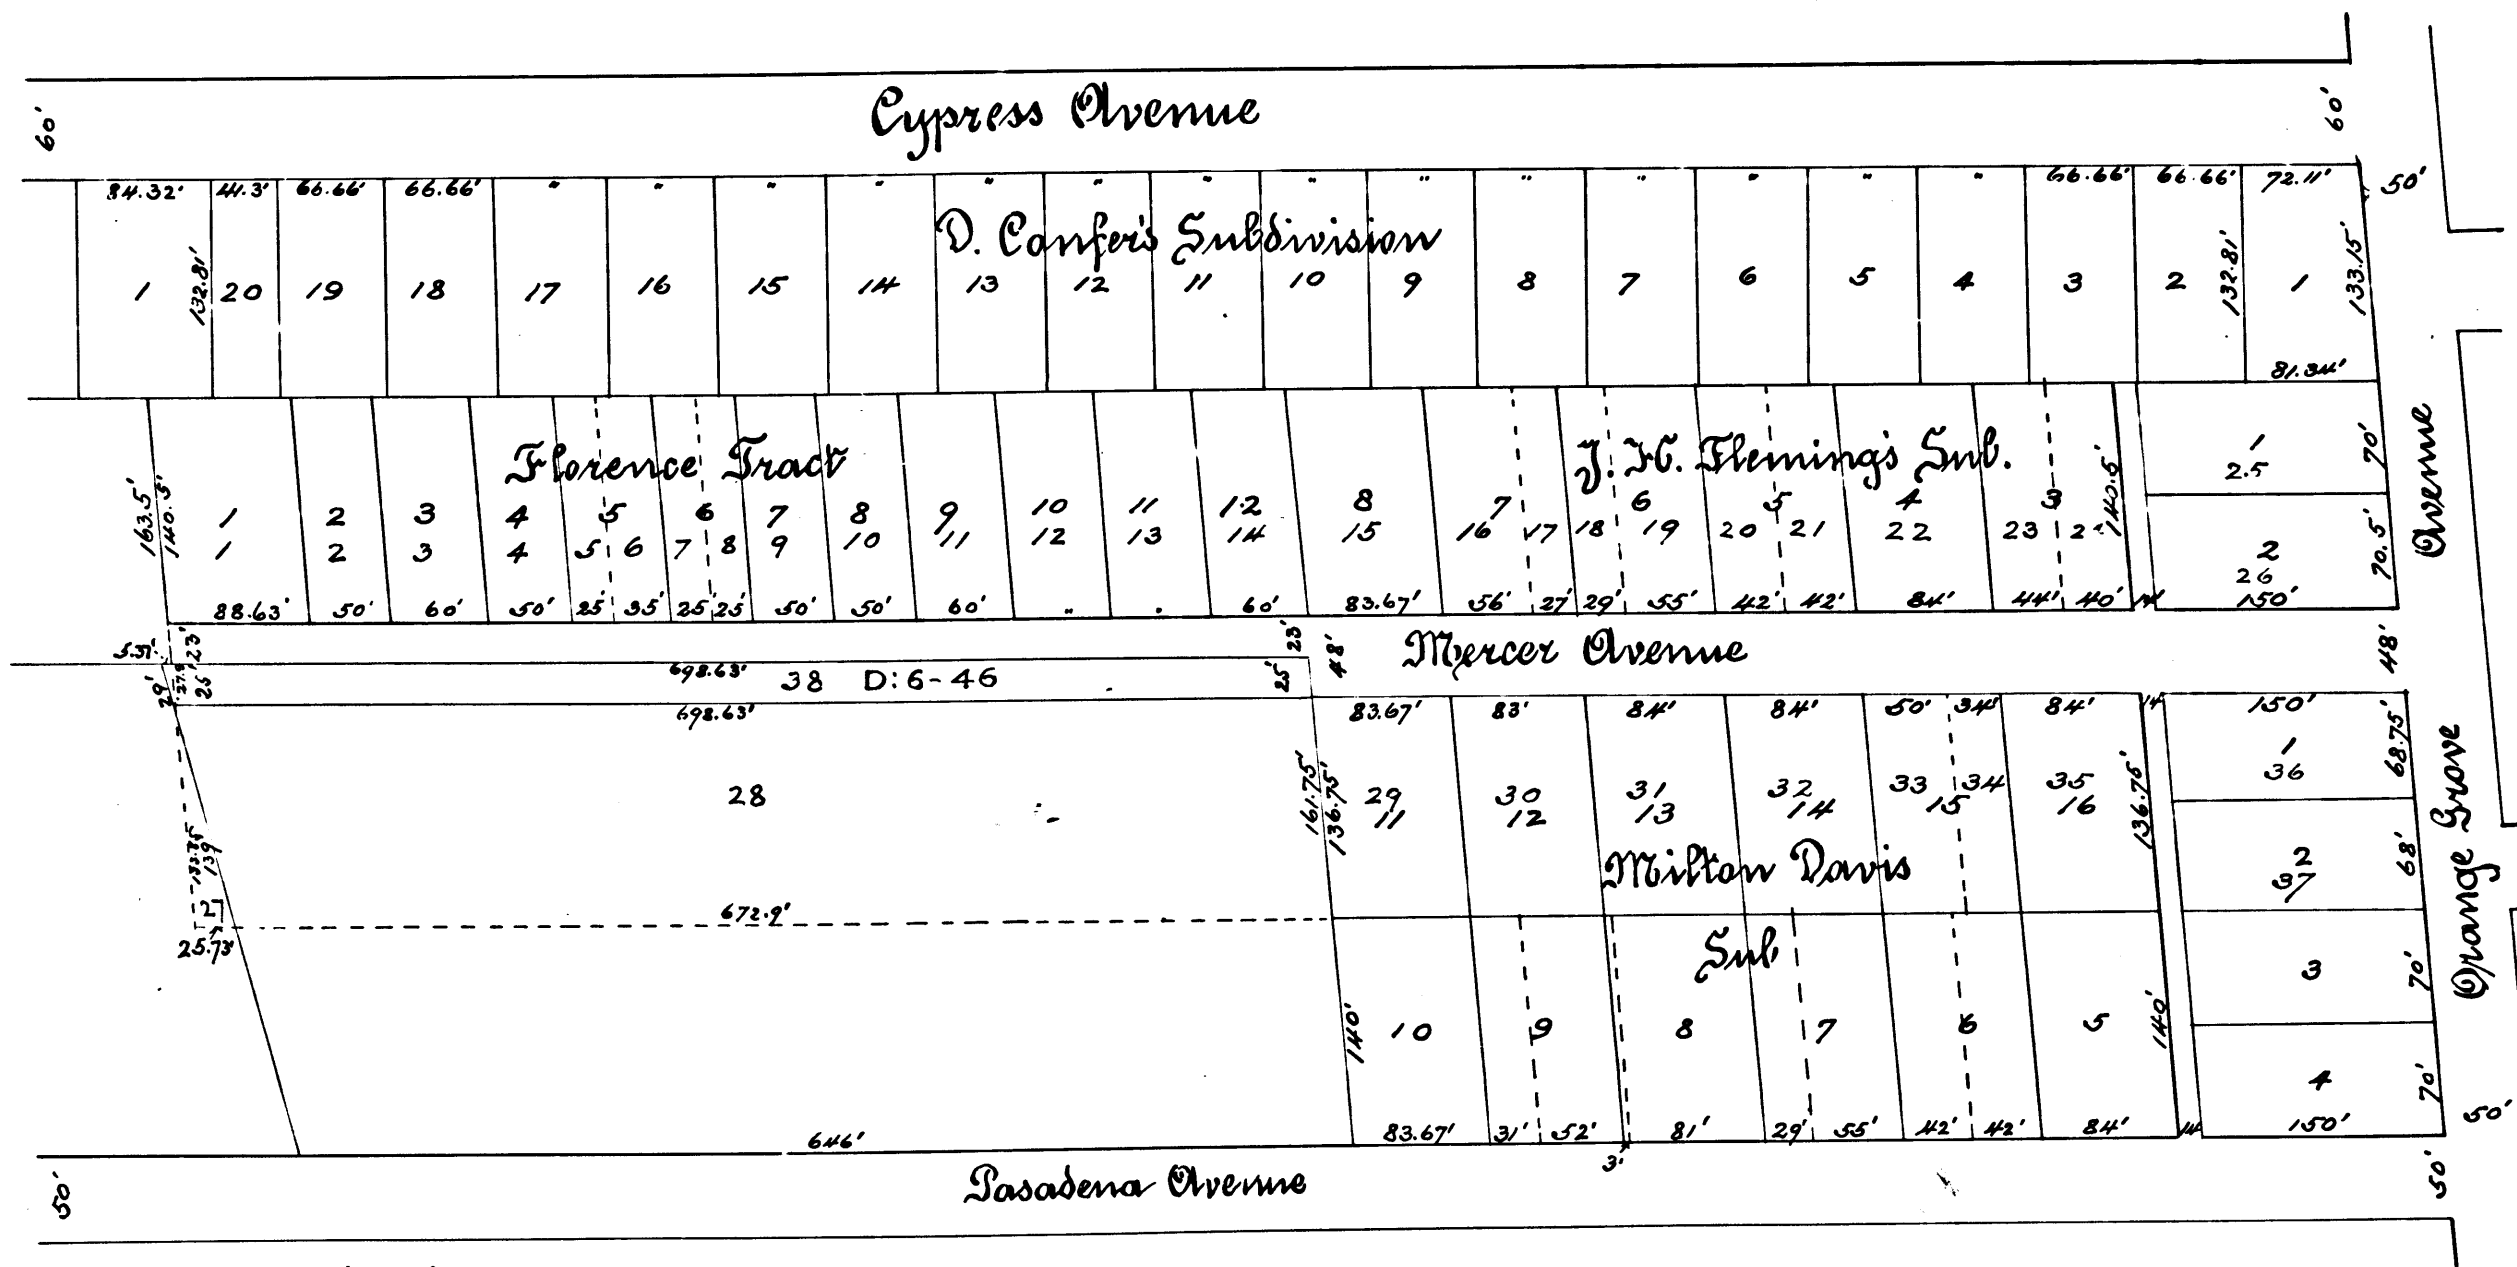 Cypress Avenue
60' 60'
84.32' 44.3' 66.66' 66.66' " " " " " " " " " " " " " " 66.66' 66.66' 72.11' 50'
D. Confer's Subdivision
1 132.81' 20 19 18 17 16 15 14 13 12 11 10 9 8 7 6 5 4 3 2 132.81' 1 133.15'
81.34'
Florence Tract
J. H. Fleming's Sub.
163.5' 140.5' 140.5'
1 2 3 4 5 6 7 8 9 10 11 12 8 7 6 5 4 3
1 2 3 4 5 6 7 8 9 10 11 12 13 14 15 16 17 18 19 20 21 22 23
88.63' 50' 60' 50' 25' 35' 25' 25' 50' 50' 60' " " 60' 83.67' 56' 27' 29' 55' 42' 42' 84' 44' 40' 14' 150'
1
25
70'
2
26
70.5'
Avenue
Mercer Avenue
23' 23' 48' 48'
698.63'
38 D:6-46
29' 25' 25'
698.63'
83.67' 83' 84' 84' 50' 34' 84' 14' 150'
28
161.75' 136.75' 136.75'
29 30 31 32 33 34 35
11 12 13 14 15 16
1
36
68.75'
2
37
68'
Milton Davis
Sub
139
672.9'
25.73'
140' 10 9 8 7 6 5 140'
3
70'
4
70'
Orange Grove
646' 83.67' 31' 52' 81' 29' 55' 42' 42' 84' 14' 150' 50'
3'
Pasadena Avenue
50' 50'